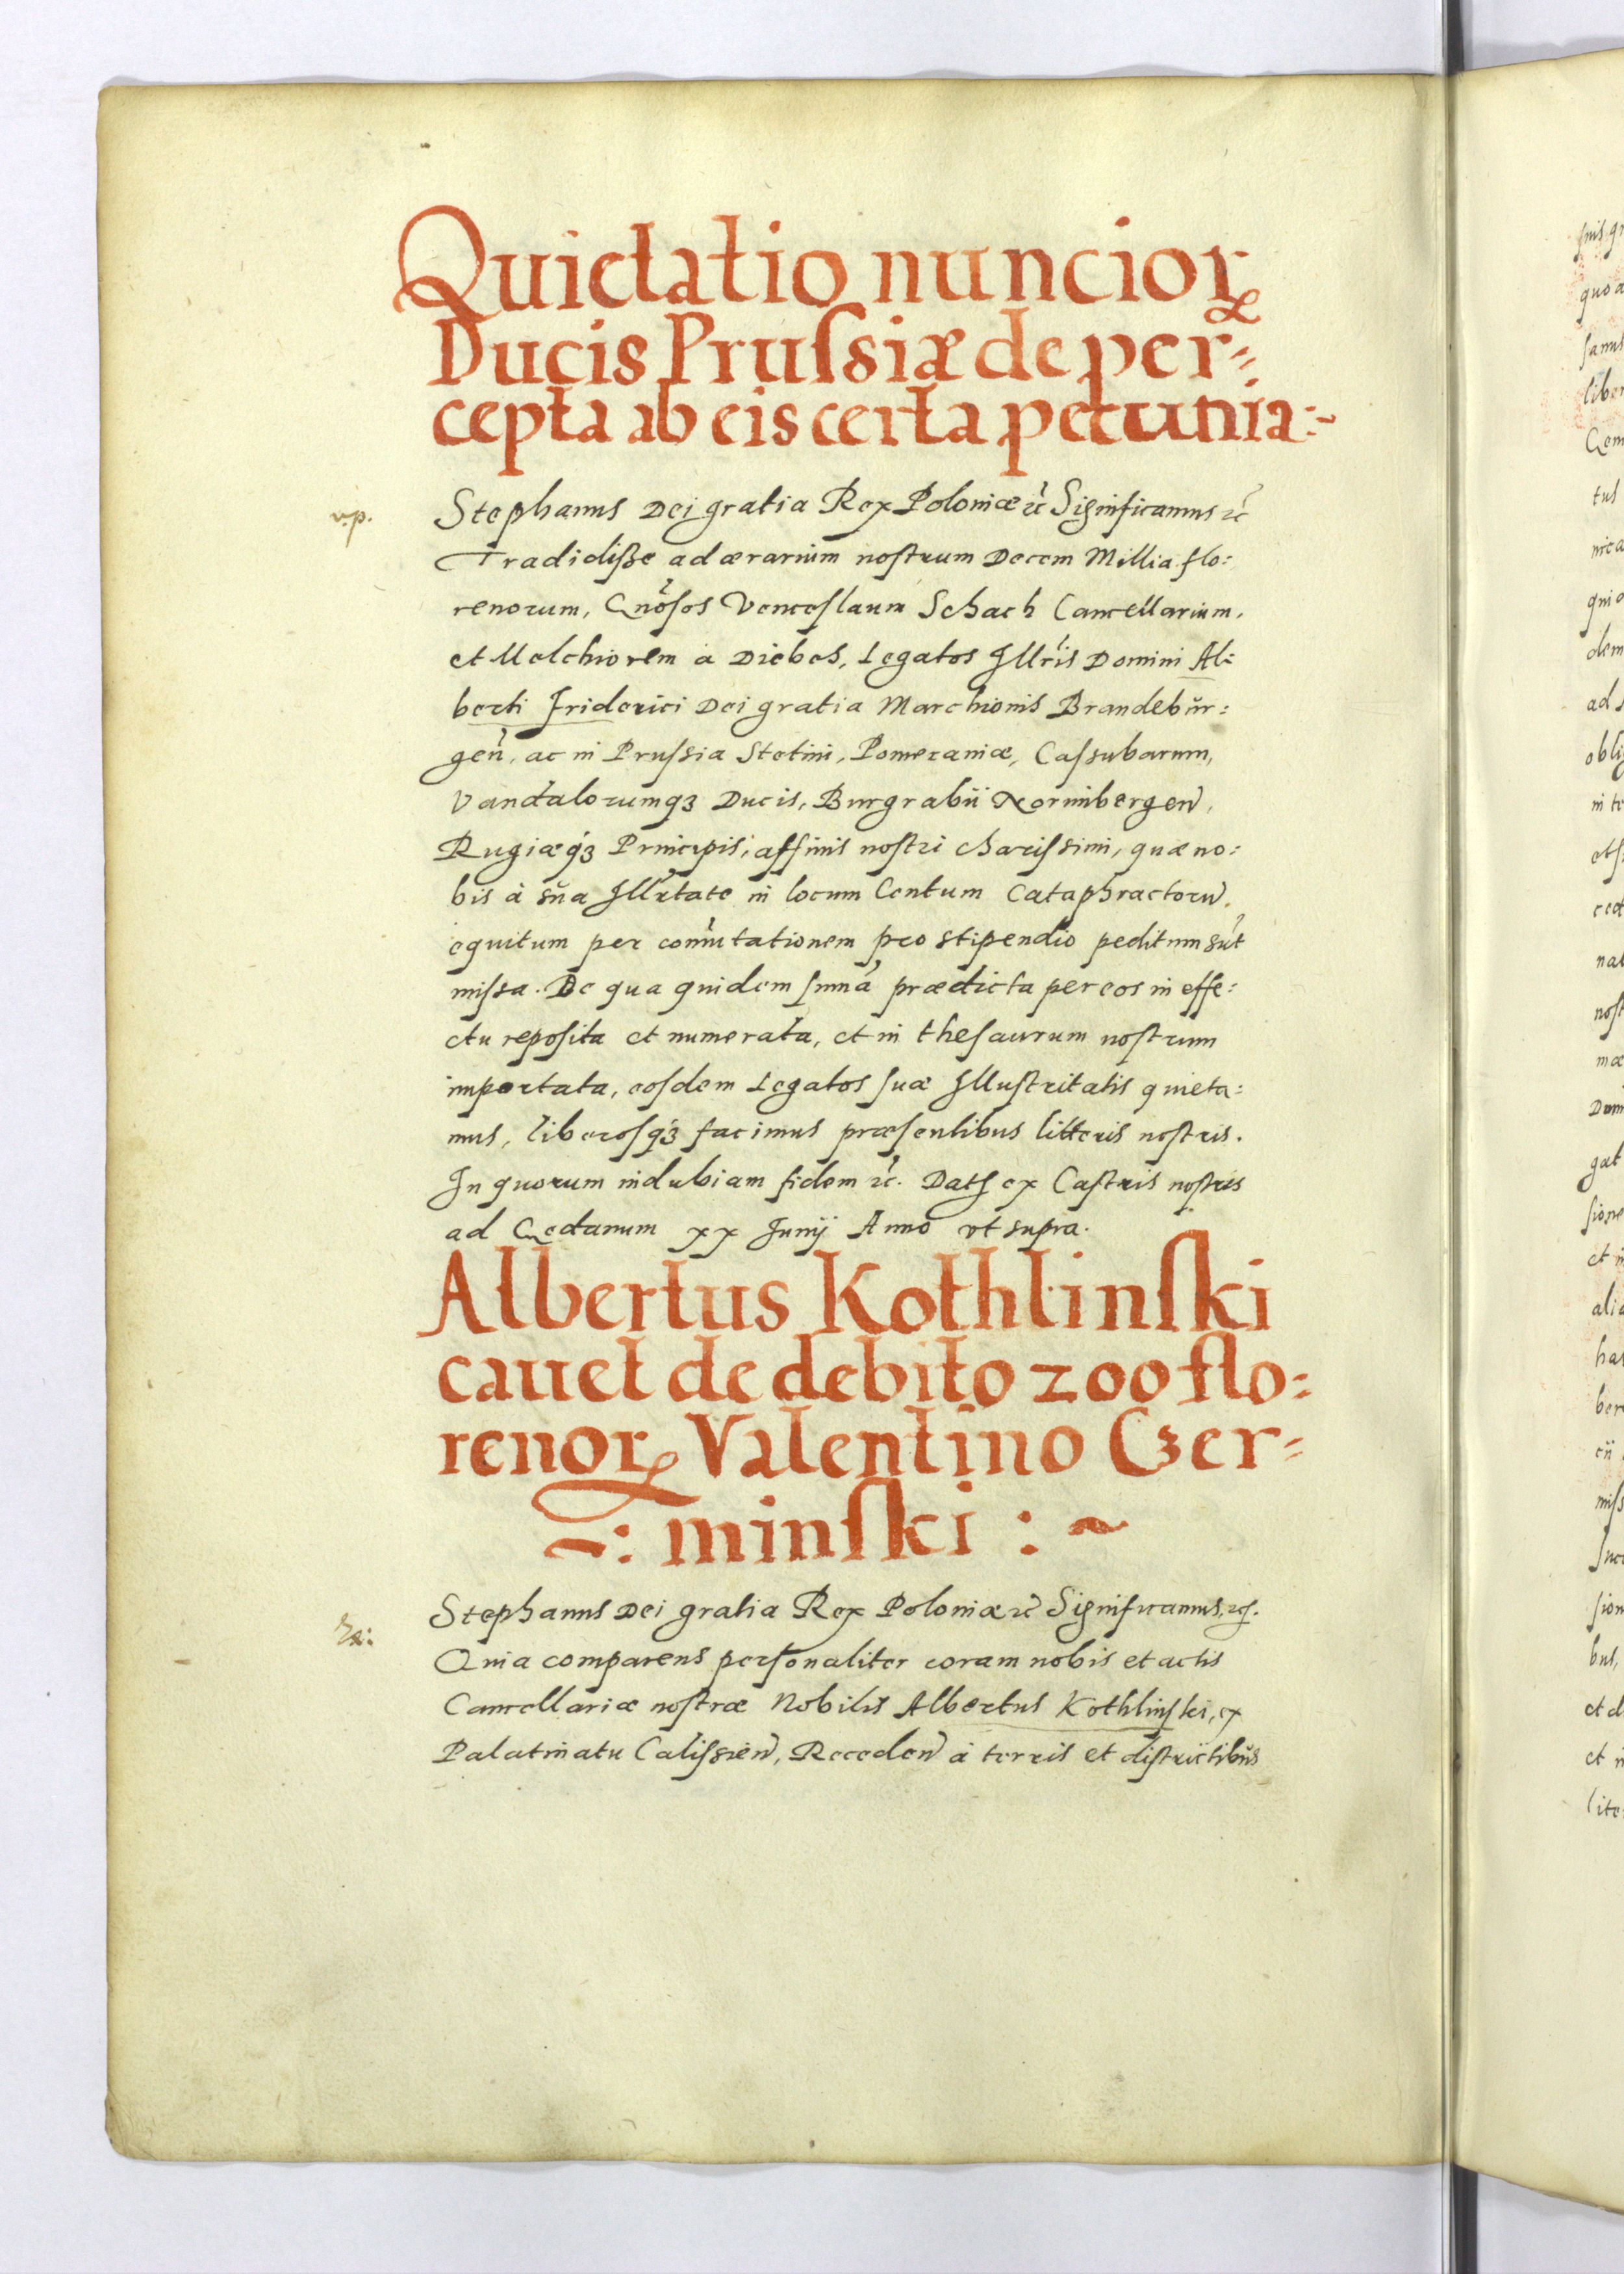 Quictatio nuncioꝝ
Ducis Pruſsiæ de per⸗
cepta ab eis certa pecunia:~
v.p.
Stephanus Dei gratia Rex Poloniæ ꝛc̃ Significamus ꝛc̃
Tradidiſße ad ærarium noſtrum Decem Millia flo:
renorum, Gnõſos Venceſlaum Schach Cancellarium,
et Melchiorem à Diebes, Legatos Illr̃is Domini Al:
berti Friderici Dei gratia Marchionis Brandebŭr:
geñ, ac in Pruſsia Stetini, Pomeraniæ, Caſsubarum,
Vandalorumqꝫ Ducis, Burgrabii Norimbergeñ,
Rugiæqꝫ Principis, affinis noſtri chariſsimi, quæ no:
bis à sŭa Illr̃tate in locum Centum Cataphractorũ
equitum per com̃utationem pro stipendio peditum sũt
miſsa. De qua quidem ſum̃a prædicta per eos in effe:
ctu repoſita et numerata, et in theſaurum noſtrum
importata, eoſdem Legatos ſuæ Illuſtritatis quieta:
mus, liberoſqꝫ facimus præſentibus litteris noſtris.
In quorum indubiam fidem ꝛc̃. Datꝭ ex Caſtris noſtris
ad Gedanum xx Junij Anno vt supra.
Albertus Kothlinſki
cauet de debito 200 flo:
renoꝝ Valentino Czer⸗
~: minſki :~
Stephanus Dei gratia Rex Poloniæ ꝛc̃ Significamus, ꝛcꝭ.
Quia comparens perſonaliter coram nobis et actis
Cancellariæ noſtræ Nobilis Albertus Kothlinſki, ex
Palatinatu Caliſsieñ, Recedeñ à terris et diſtrictibŭs